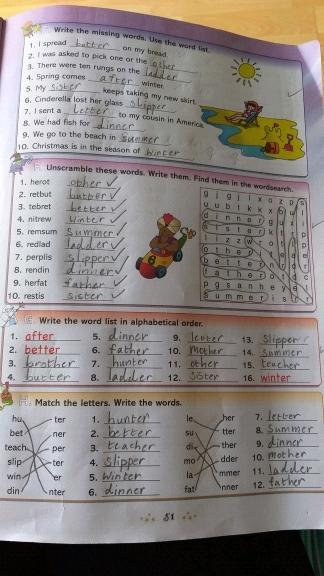 Write the missing words. Use the word list.
1. I spread butter on my bread.
2. I was asked to pick one or the other
3. There were ten rungs on the ladder
4. Spring comes after winter.
5. My sister keeps taking my new skirt.
6. Cinderella lost her glass slipper
7. I sent a letter to my cousin in America.
8. We had fish for dinner
9. We go to the beach in summer
10. Christmas is in the season of winter
Unscramble these words. Write them. Find them in the wordsearch.
1. herot other ✓
2. retbut butter ✓
3. tebret better ✓
4. nitrew winter ✓
5. remsum summer ✓
6. redlad ladder ✓
7. perplis slipper ✓
8. rendin dinner ✓
9. herfat father ✓
10. restis sister ✓
dinner
sister
better
father
summer
Write the word list in alphabetical order.
1. after 5. dinner 9. letter 13. slipper
2. better 6. father 10. mother 14. summer
3. brother 7. hunter 11. other 15. teacher
4. butter 8. ladder 12. sister 16. winter
Match the letters. Write the words.
hu ter 1. hunter le her 7. letter
bet ner 2. better su tter 8. summer
teach per 3. teacher di ther 9. dinner
slip ter 4. slipper mo dder 10. mother
win er 5. winter la mmer 11. ladder
din nter 6. dinner fat nner 12. father
51